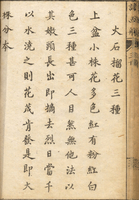 大石榴花三種
上盆小株花多色紅有粉紅白
色三種甚可人目然無他法以
其嫩頭長出即摘去烈日當午
以水澆之則花茂肯發是即大
株分本